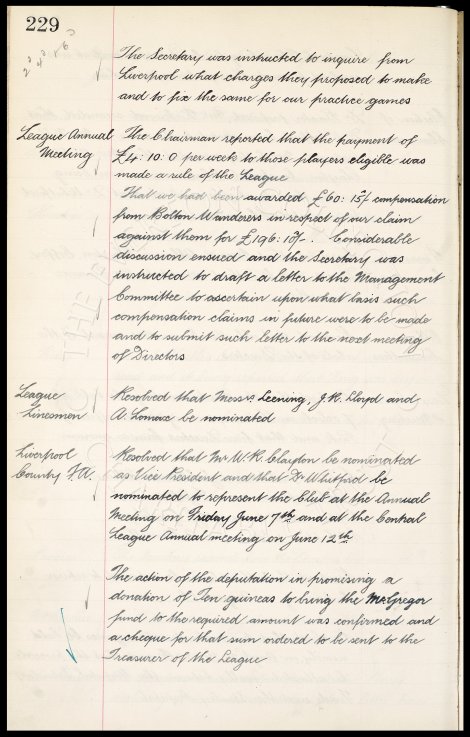 229
2/3 4/3 6/8
The Secretary was instructed to inquire from
Liverpool what charges they proposed to make
and to fix the same for our practice games
League Annual The Chairman reported that the payment of
Meeting £4: 10: 0 per week to those players eligible was
made a rule of the League
That we had been awarded £60: 15/- compensation
from Bolton Wanderers in respect of our claim
against them for £196: 10/-. Considerable
discussion ensued and the Secretary was
instructed to draft a letter to the Management
Committee to ascertain upon what basis such
compensation claims in future were to be made
and to submit such letter to the next meeting
of Directors
League Resolved that Messrs Leening, J.R. Lloyd and
Linesmen A. Lomax be nominated
Liverpool Resolved that Mr W.R. Clayton be nominated
County F.A. as Vice President and that Dr Whitford be
nominated to represent the Club at the Annual
Meeting on Friday June 7th and at the Central
League Annual meeting on June 12th
The action of the deputation in promising a
donation of Ten guineas to bring the McGregor
fund to the required amount was confirmed and
a cheque for that sum ordered to be sent to the
Treasurer of the League